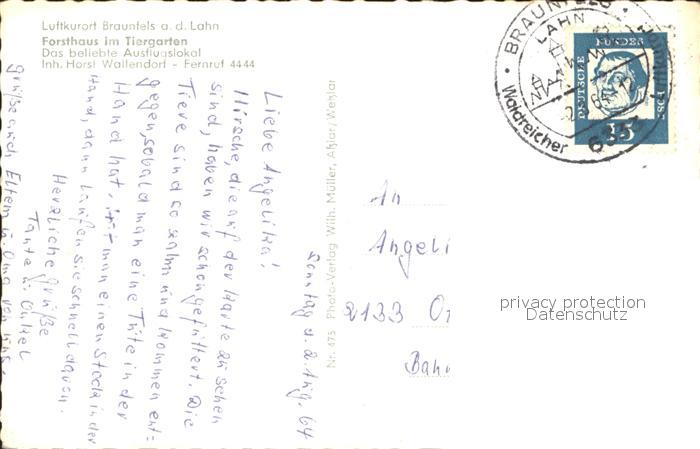 Luftkurort Braunfels a. d. Lahn
Forsthaus im Tiergarten
Das beliebte Ausflugslokal
Inh. Horst Wallendorf - Fernruf 4444
Sonntag d. 2. Aug. 64
Liebe Angelika!
Hirsche die auf der Karte zu sehen
sind, haben wir schon gefüttert. Die
Tiere sind so zahm und kommen ent=
gegen, sobald man eine Tüte in der
Hand hat, man einen Stock in der
Hand, dann laufen sie schnell davon.
Herzliche Grüße
Tante u. Onkel
Grüße auch Eltern u. Oma von uns.
Nr. 475 Photo-Verlag Wilh. Müller, Aßlar/Wetzlar
An
Angeli
2133
Bahn
BRAUNFELS
LAHN
Waldreicher
6333
DEUTSCHE
BUNDES
15
privacy protection
Datenschutz